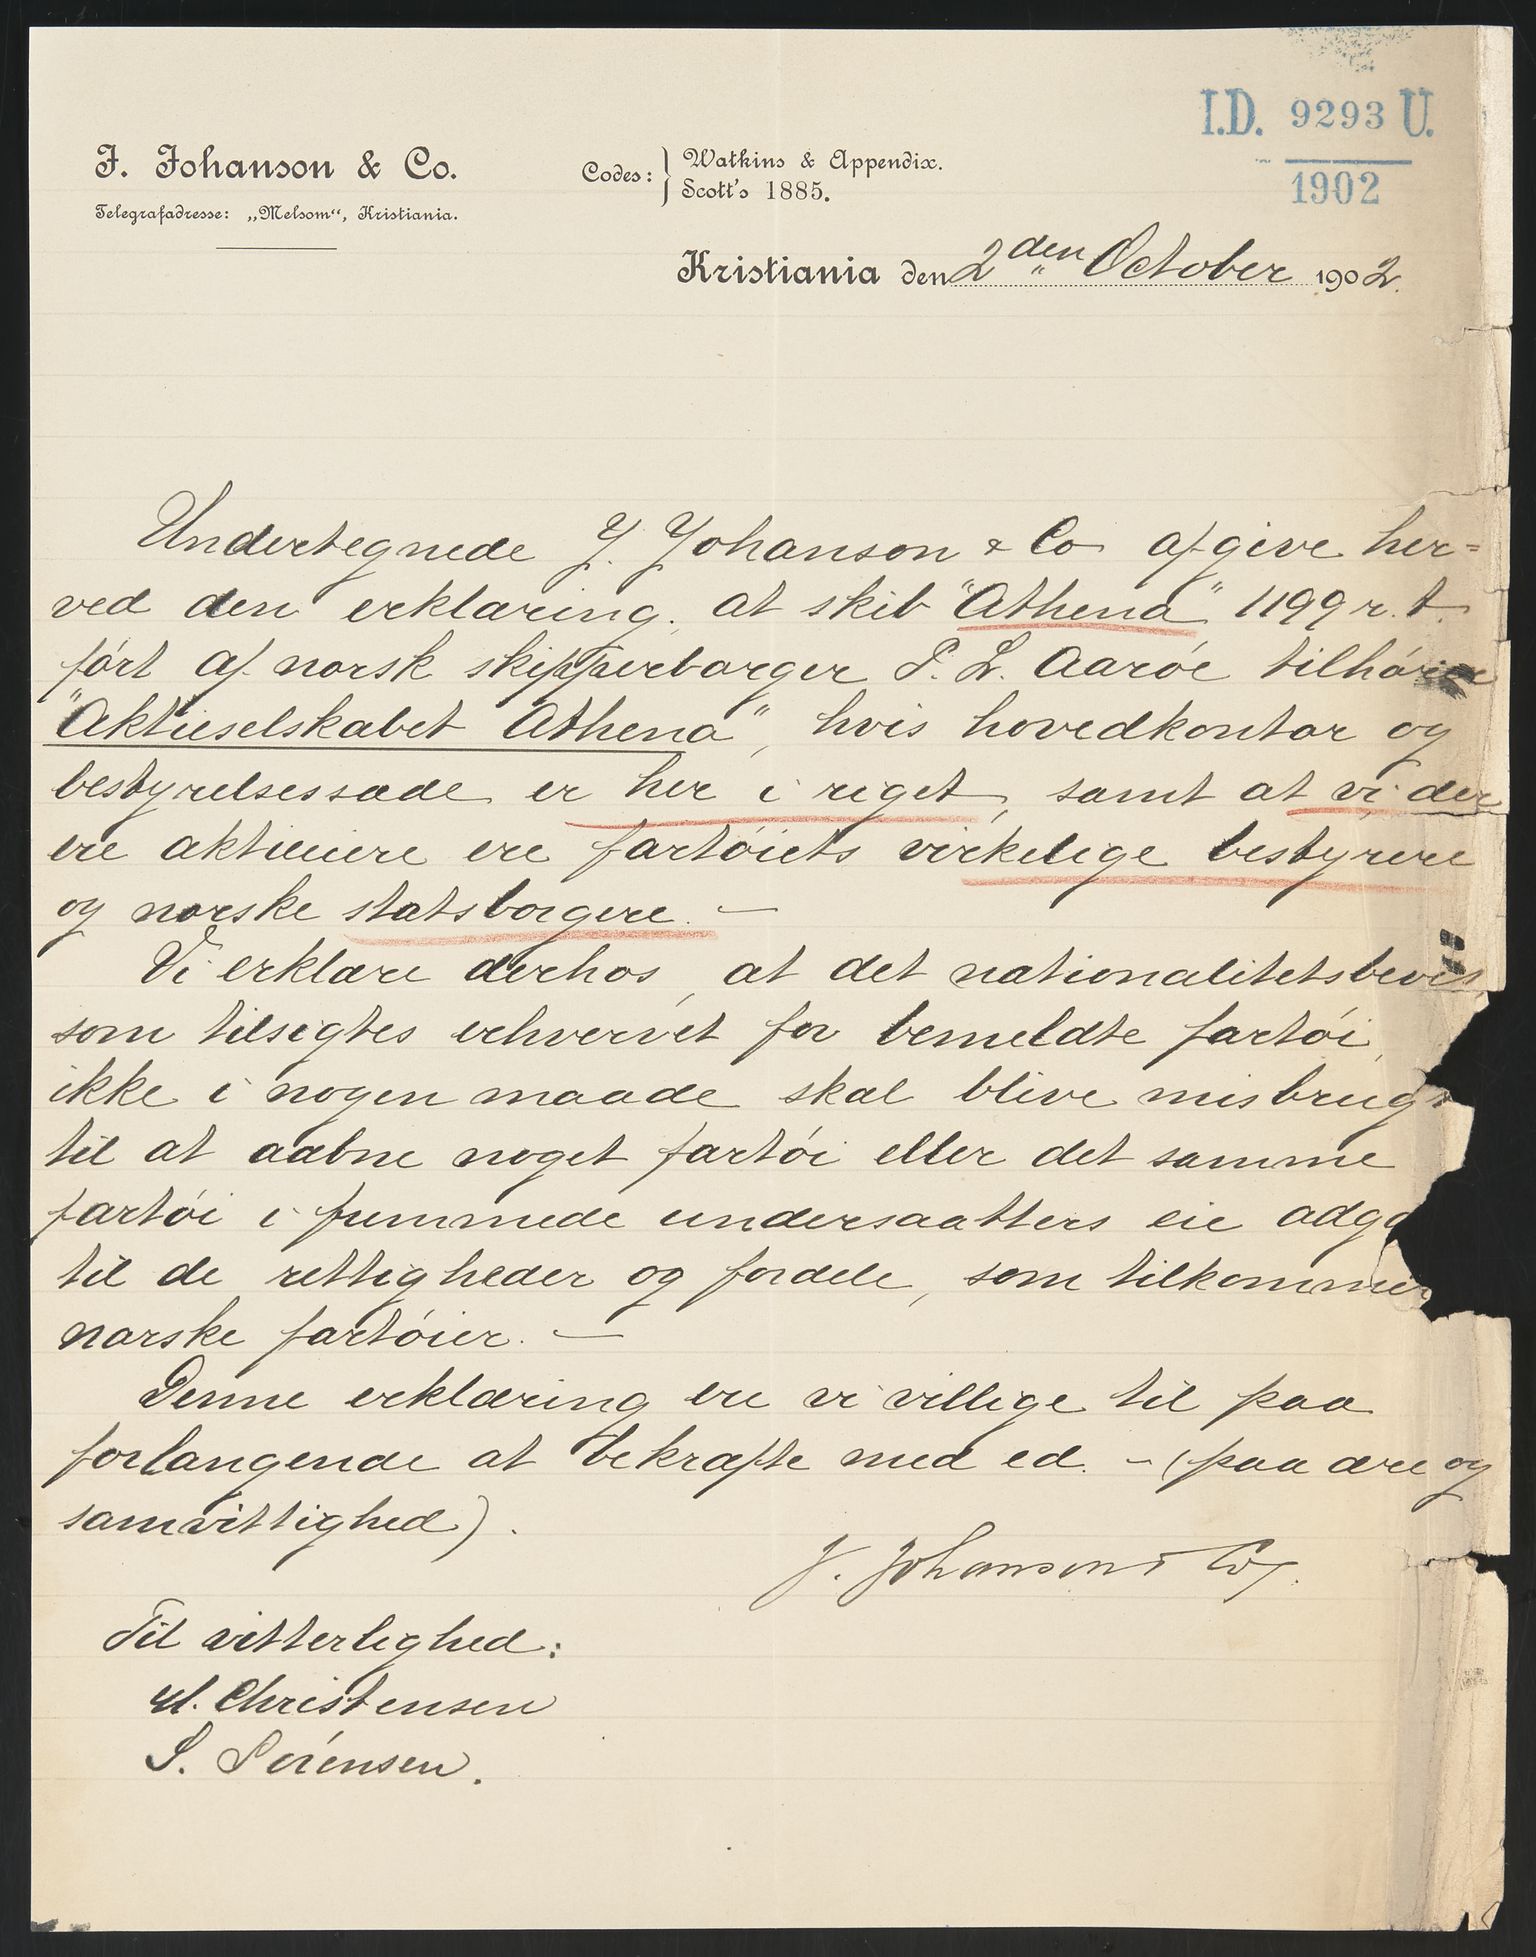 I.D. 9293 U.
1902
J. Johanson & Co.
Telegrafadresse: „Melsom“, Kristiania.
Codes: } Watkins & Appendix.
Scott's 1885.
Kristiania den 2den October 1902.
Undertegnede J. Johanson & Co afgive her=
ved den erklæring, at skib "Athena" 1199 r. t.
ført af norsk skipperborger P. L. Aarøe tilhører
"Aktieselskabet Athena", hvis hovedkontor og
bestyrelsessæde er her i riget, samt at vi der
ere aktieiere ere fartøiets virkelige bestyrere
og norske statsborgere. —
Vi erklære derhos, at det nationalitetsbevis
som tilsigtes erhvervet for bemeldte fartøi,
ikke i nogen maade skal blive misbrugt
til at aabne noget fartøi eller det samme
fartøi i fremmede undersaatters eie adga
til de rettigheder og fordele, som tilkommer
norske fartøier. —
Denne erklæring ere vi villige til paa
forlangende at bekræfte med ed. - (paa ære og
samvittighed).
J. Johanson & Co.
Til vitterlighed:
Christensen
S. Sørensen.